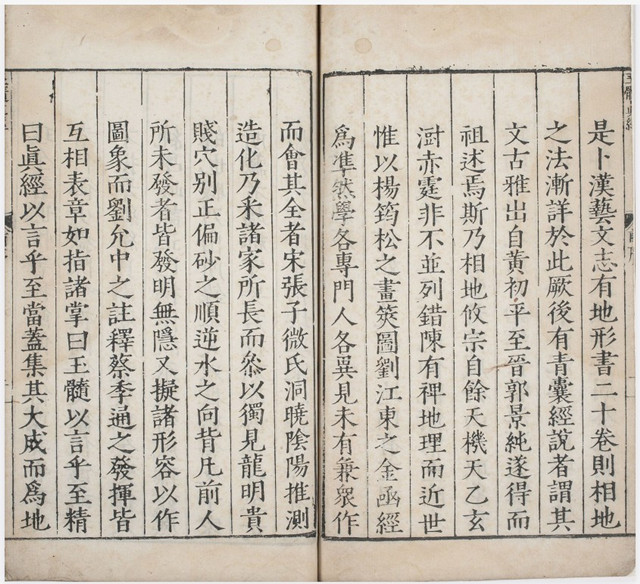 是卜漢藝文志有地形書二十卷則相地
之法漸詳於此厥後有青囊經說者謂其
文古雅出自黃初平至晉郭景純遂得而
祖述焉斯乃相地攸宗自餘天機天乙玄
澍赤霆非不並列錯陳有裨地理而近世
惟以楊筠松之畫筴圖劉江東之金函經
為準然學各專門人各異見未有兼眾作
而會其全者宋張子微氏洞曉陰陽推測
造化乃釆諸家所長而叅以獨見龍明貴
賤穴別正偏砂之順逆水之向背凡前人
所未發者皆發明無隱又擬諸形容以作
圖象而劉允中之註釋蔡季通之發揮皆
互相表章如指諸掌曰玉髓以言乎至精
曰眞經以言乎至當蓋集其大成而為地